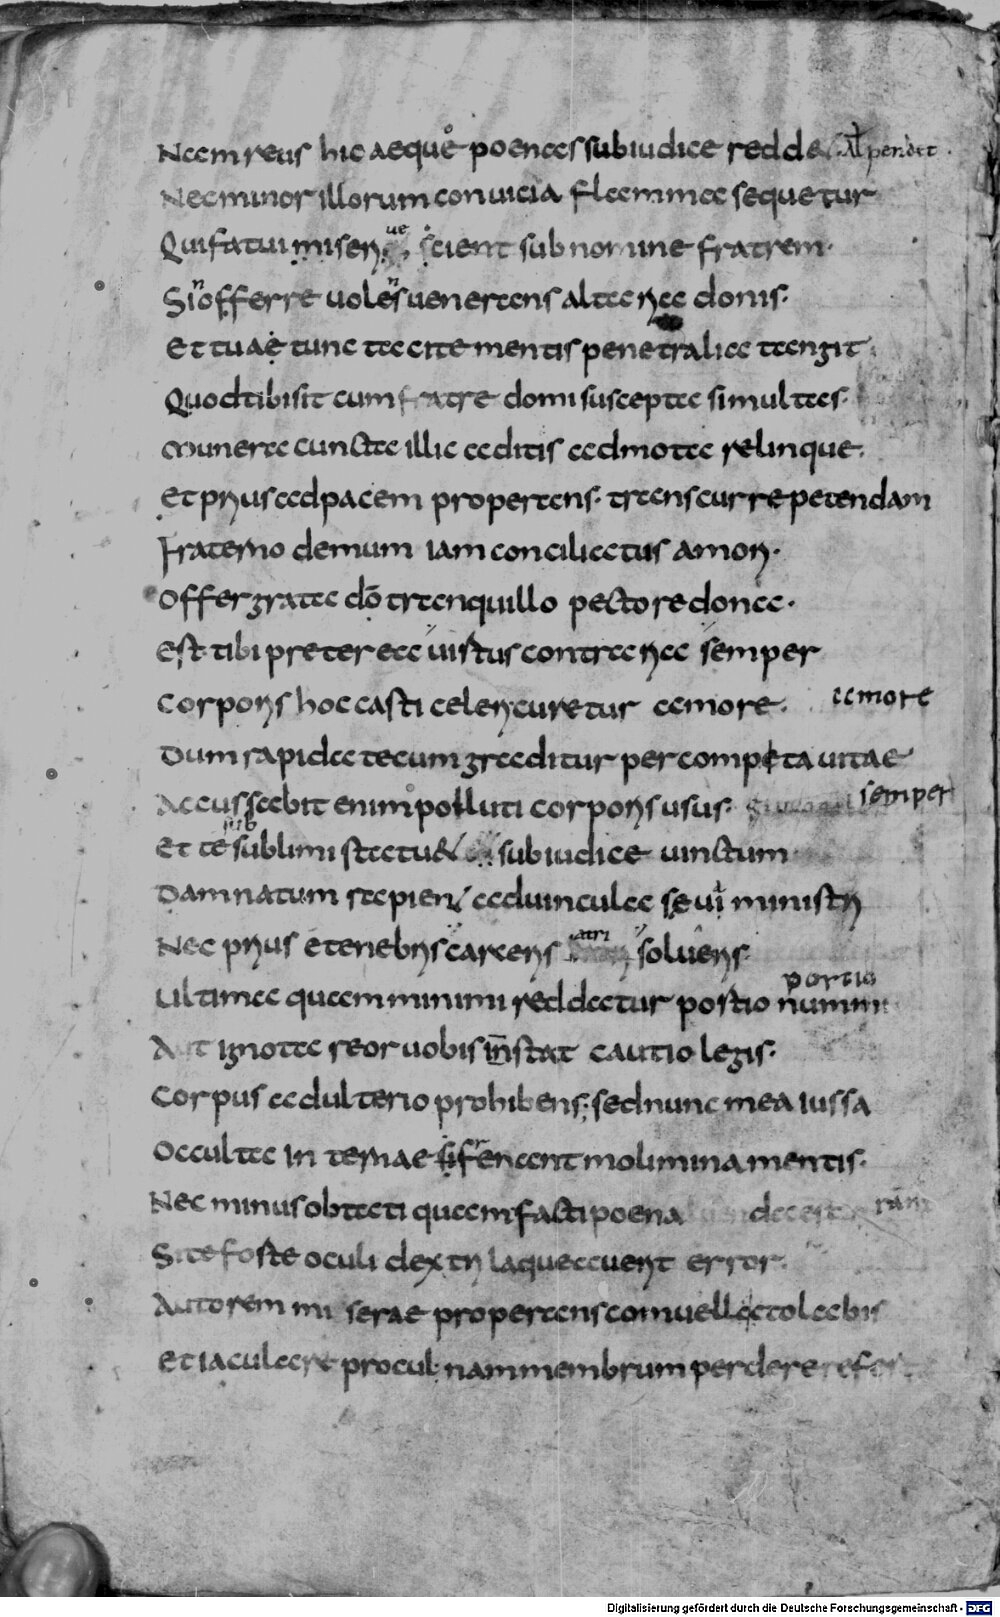 Nam reus hic aeque poenas sub iudice reddet. Al pendet.
Nec minor illorum convicia flamma sequetur
Qui fatui miserum scient sub nomine fratrem.
Sin offerre voles venerans altaria donis.
Et tuae tunc tacite mentis penetralia tangit
Quod tibi sit cum fratre domi suscepta simultas.
Munera cuncta illic aditis admota relinque.
Et prius ad pacem properans. transcurre petendam
Fraterno demum iam conciliatus amori.
Offer grata dō tranquillo pectore dona.
Est tibi preterea iustus contraria semper
Corporis hoc casti celeri curetur amore. amore
Dum rapida tecum graditur per competa vitae
Accussabit enim polluti corporis usus. semper
Et te sublimi statuet sub iudice vinctum
sub
Damnatum rapient ad vincula sevi ministri
Nec prius e tenebris carceris atri solveris.
Ultima quam minimi reddatur postio nummi
portio
Aut ignota reor vobis instat cautio legis.
Corpus adulterio prohibens; sed nunc mea iussa
Occulta in ternae sifrenant molimina mentis.
Nec minus obtecti quam facti poena
Si te foste oculi dextri laqueaverit error.
Autorem miserae properans comvellato labis
Et iaculare procul; nam membrum perdere refer